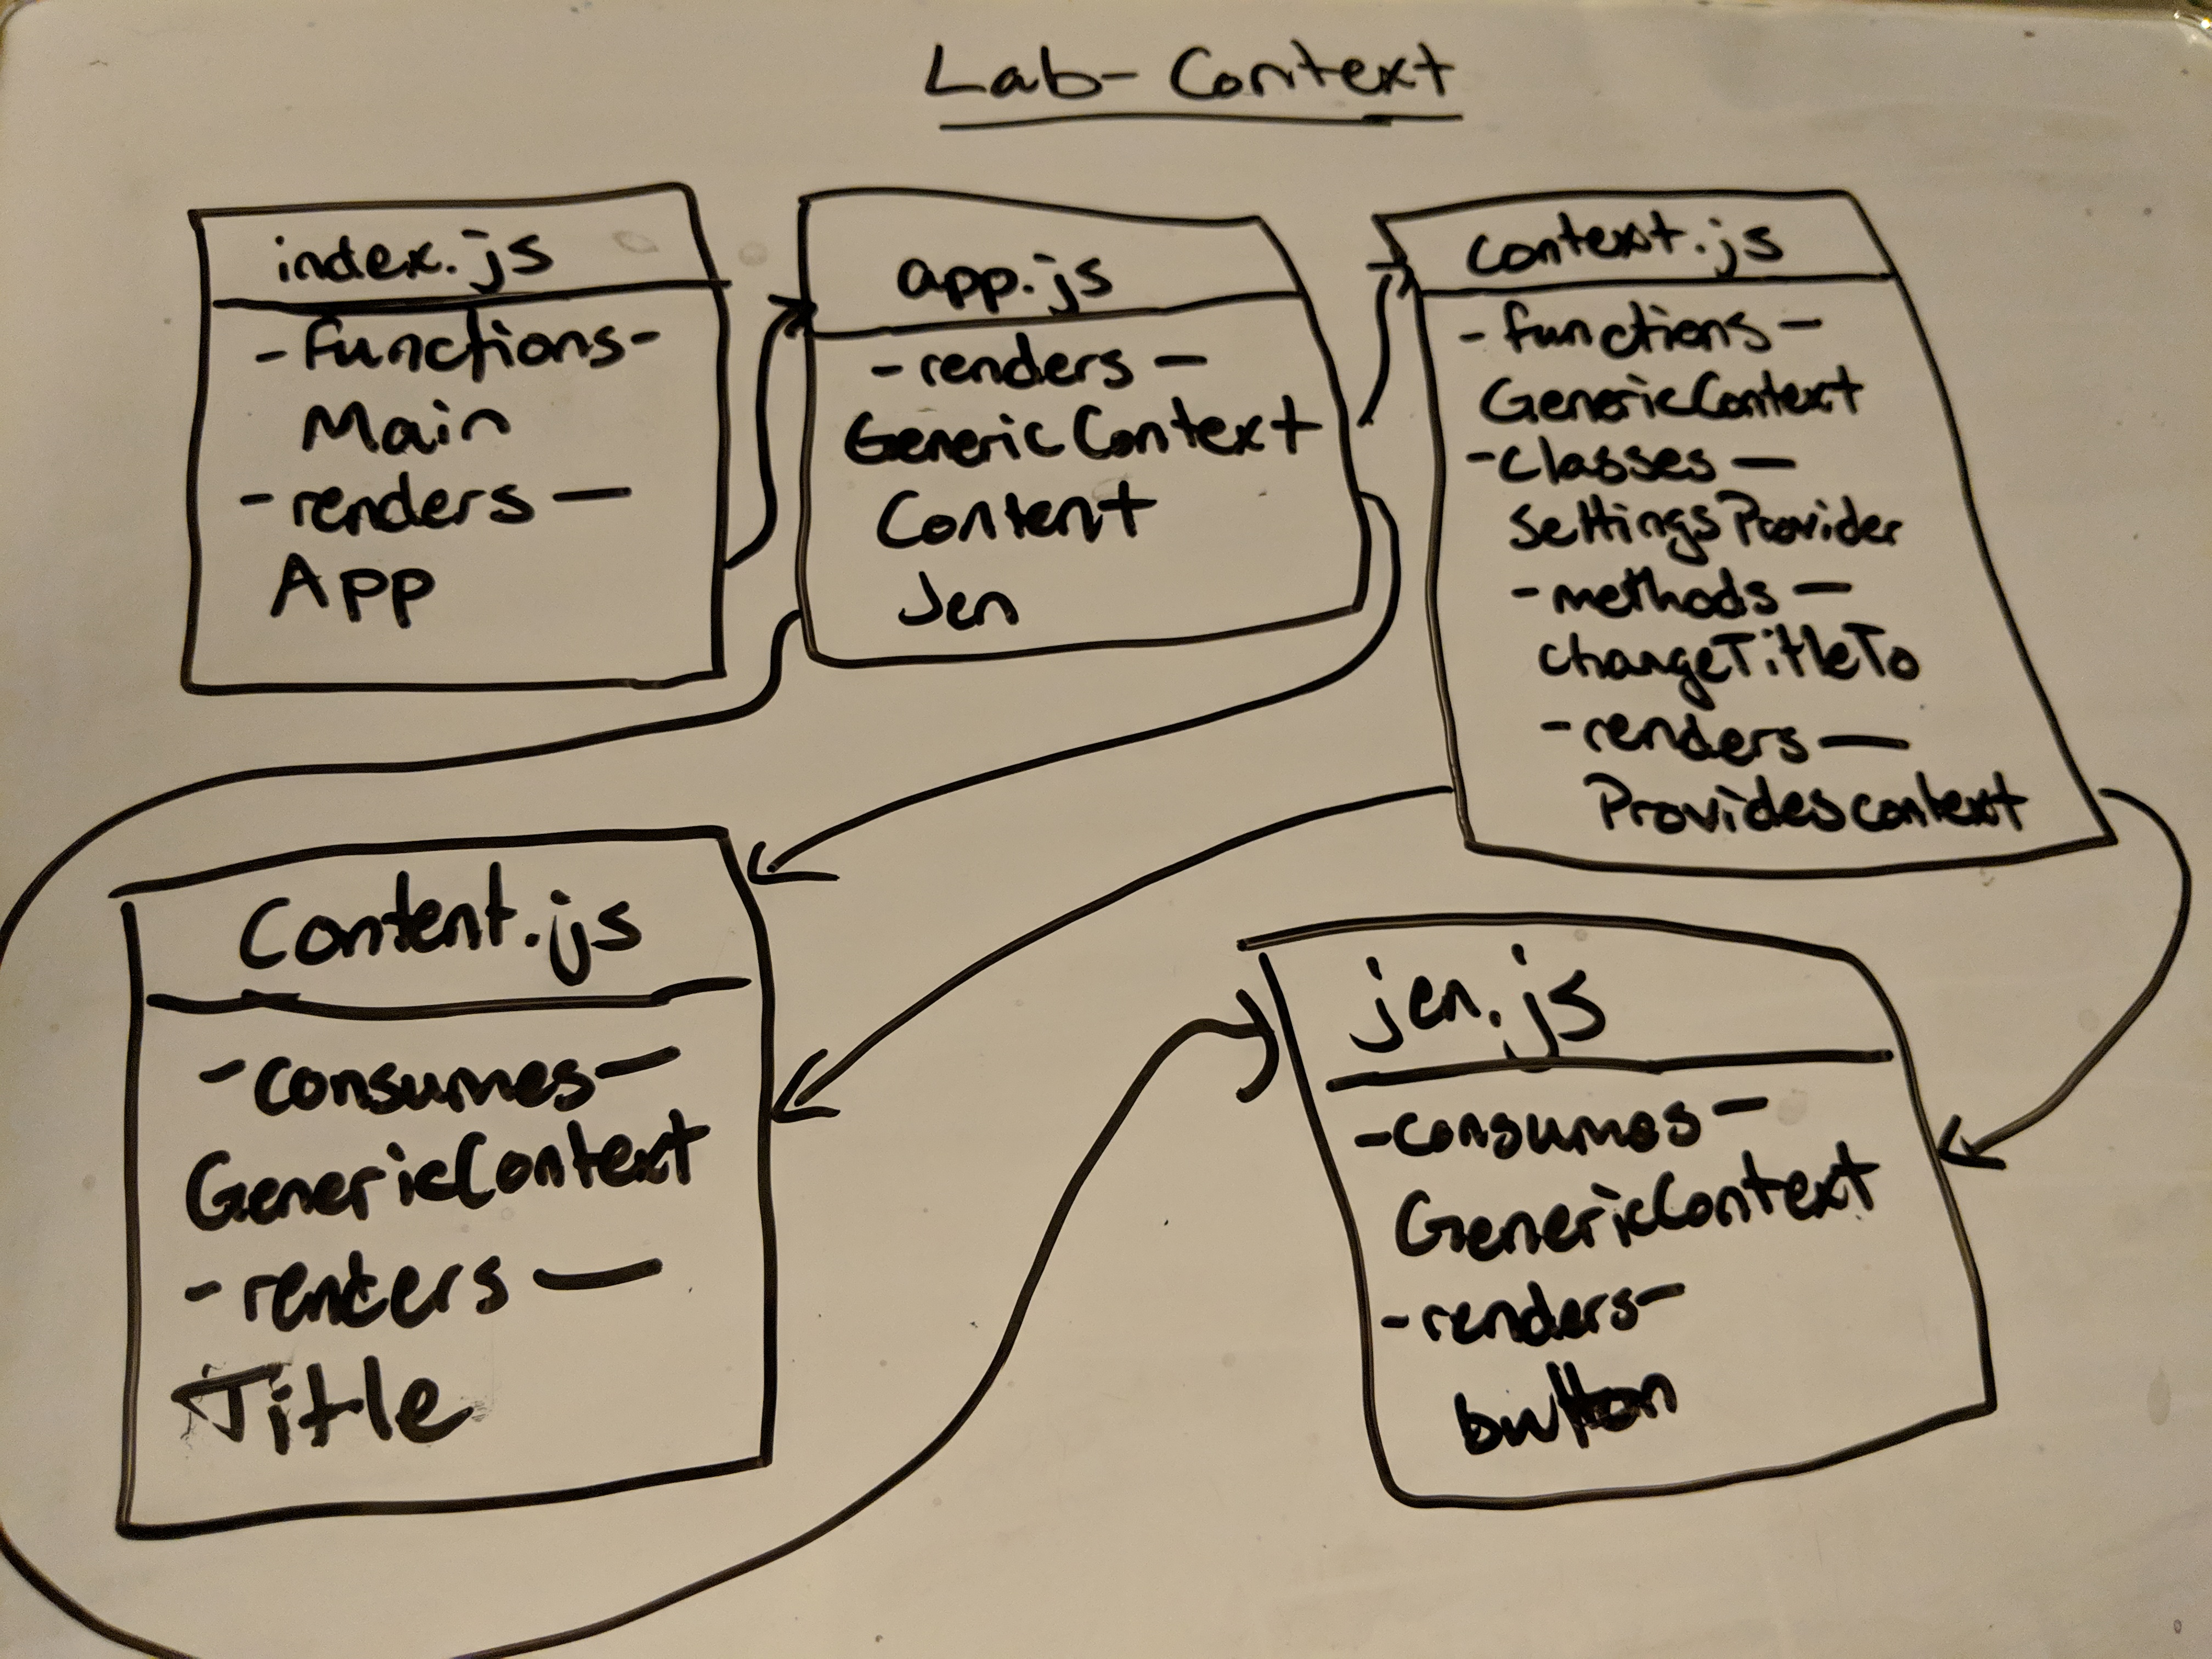 Lab- Context
index.js
-functions-
Main
-renders-
App
app.js
-renders-
GenericContext
Content
Jen
context.js
-functions-
GenericContext
-classes-
SettingsProvider
-methods-
changeTitleTo
-renders-
Providescontext
Content.js
-consumes-
GenericContext
-renders-
Title
jen.js
-consumes-
GenericContext
-renders-
button